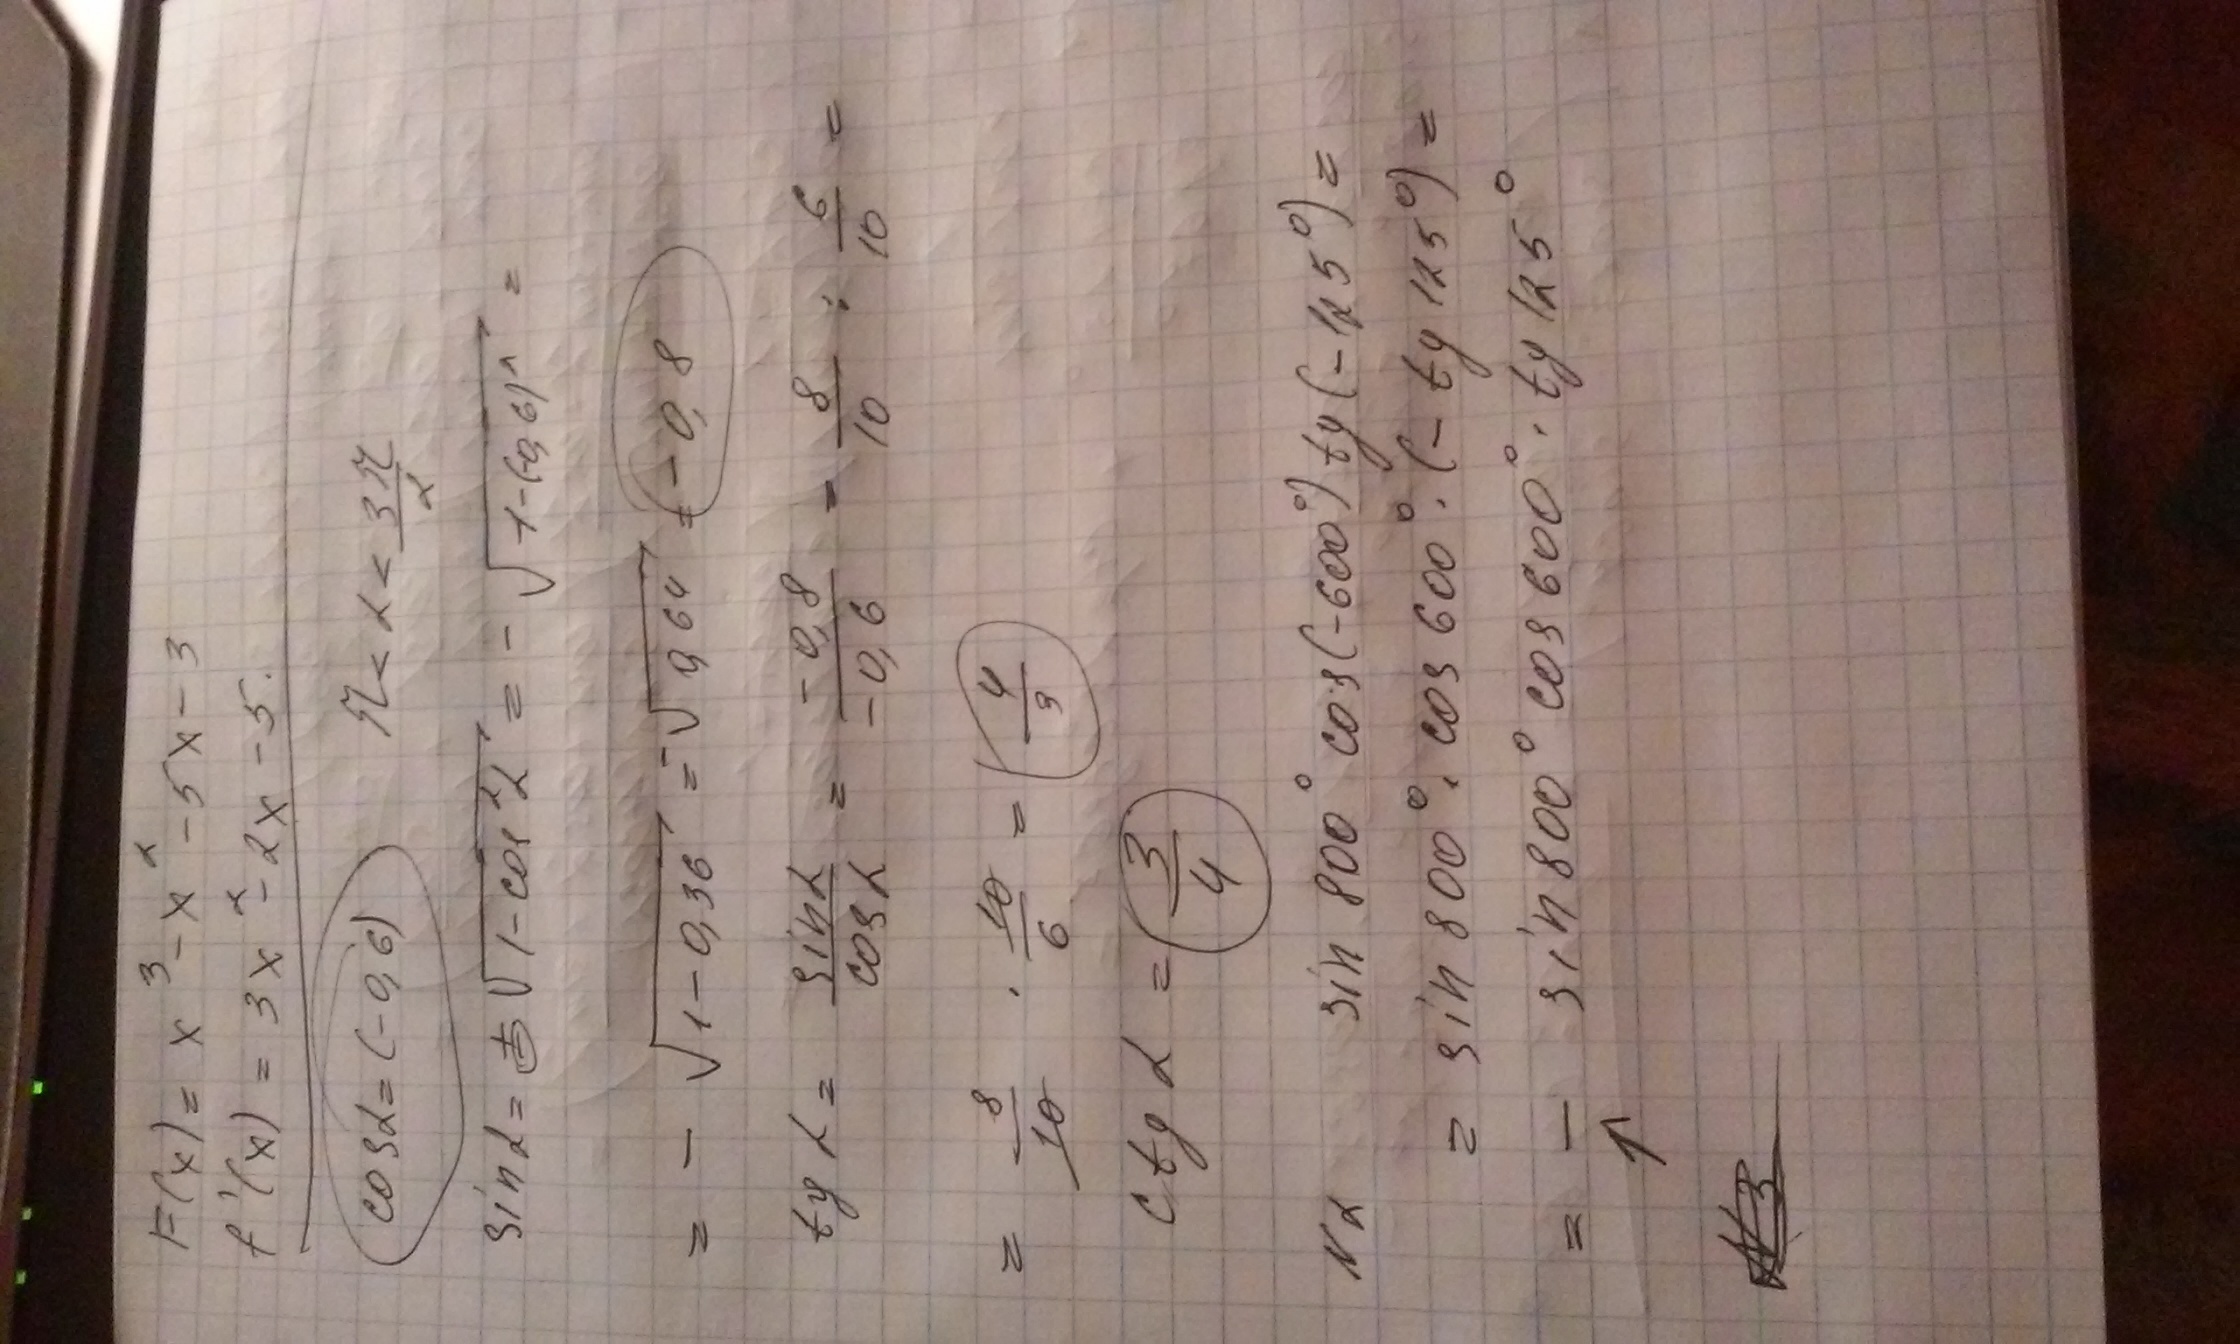 F(x) = x³ - x² - 5x - 3
f'(x) = 3x² - 2x - 5.
cosα = (-0,6) π < α < 3π/2
sinα = ±√(1-cos²α) = -√(1-(-0,6)²) =
= -√(1-0,36) = -√0,64 = -0,8
tg α = sinα/cosα = -0,8/-0,6 = 8/10 : 6/10 =
= 8/10 · 10/6 = 4/3
ctg α = 3/4
N2 sin 800° cos(-600°) tg(-125°) =
= sin 800° · cos 600° · (-tg 125°) =
= - sin 800° cos 600° · tg 125°
↑